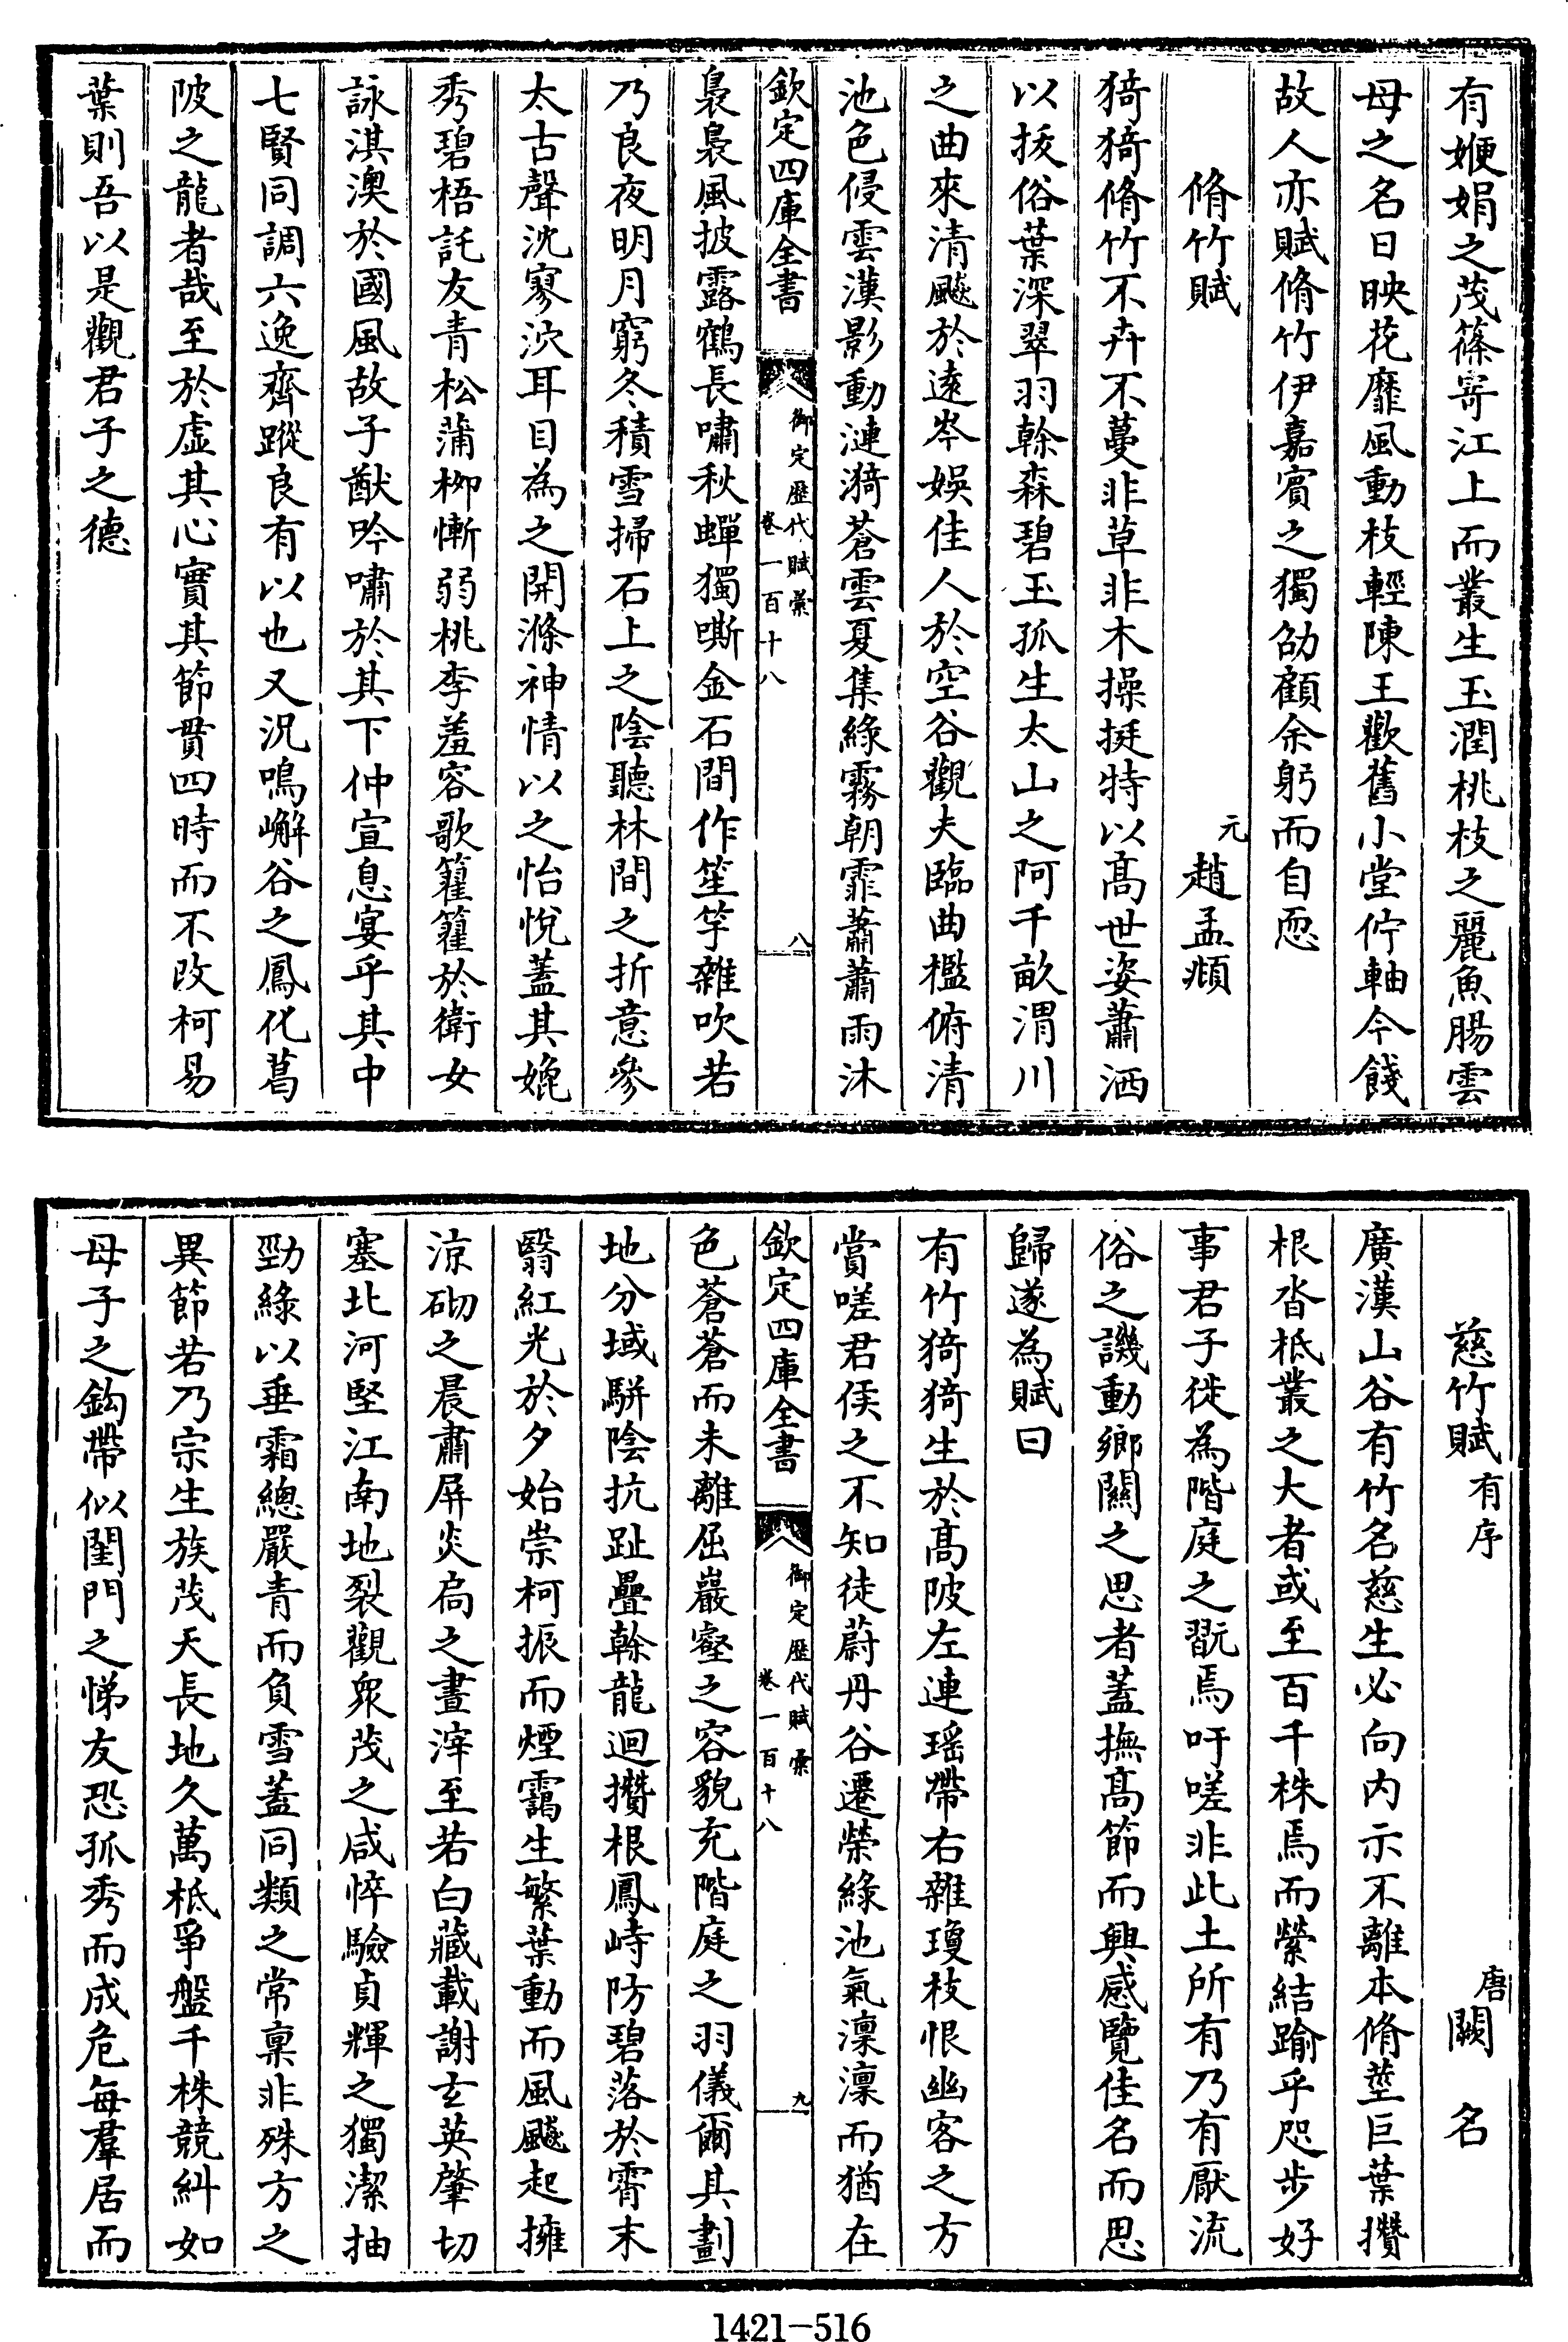 有㛹娟之茂篠寄江上而叢生玉潤桃枝之麗魚腸雲
母之名日映花靡風動枝輕陳王歡舊小堂佇軸今餞
故人亦賦脩竹伊嘉賓之獨劭顧余躬而自恧
脩竹賦
元
趙孟頫
猗猗脩竹不卉不蔓非草非木操挺特以髙世姿蕭洒
以拔俗葉深翠羽榦森碧玉孤生太山之阿千畝渭川
之曲來清飈於逺岑娛佳人於空谷觀夫臨曲檻俯清
池色侵雲漢影動漣漪蒼雲夏集綠霧朝霏蕭蕭雨沐
欽定四庫全書
御定歴代賦彙
卷一百十八
八
裊裊風披露鶴長嘯秋蟬獨嘶金石間作笙竽雜吹若
乃良夜明月窮冬積雪掃石上之陰聽林間之折意參
太古聲沈寥泬耳目為之開滌神情以之怡悅蓋其媲
秀碧梧託友青松蒲栁慚弱桃李羞容歌籊籊於衛女
詠淇澳於國風故子猷吟嘯於其下仲宣息宴乎其中
七賢同調六逸齊蹤良有以也又況鳴嶰谷之鳳化葛
陂之龍者哉至於虛其心實其節貫四時而不改柯易
葉則吾以是觀君子之德
慈竹賦
有序
唐
闕名
廣漢山谷有竹名慈生必向内示不離本脩莖巨葉攢
根沓柢叢之大者或至百千株焉而縈結踰乎咫步好
事君子徙為階庭之翫焉吁嗟非此土所有乃有厭流
俗之譏動鄉關之思者蓋撫髙節而興感覽佳名而思
歸遂為賦曰
有竹猗猗生於髙陂左連瑶帶右雜瓊枝恨幽客之方
賞嗟君侯之不知徒蔚丹谷遷榮綠池氣凛凛而猶在
欽定四庫全書
御定歴代賦彙
卷一百十八
九
色蒼蒼而未離屈巖壑之容貌充階庭之羽儀爾其劃
地分域駢陰抗趾疊榦龍迴攢根鳳峙防碧落於霄末
翳紅光於夕始崇柯振而煙靄生繁葉動而風飈起擁
涼砌之晨肅屏炎扃之晝滓至若白藏載謝玄英肇切
塞北河堅江南地裂觀衆茂之咸悴驗貞輝之獨潔抽
勁綠以垂霜總嚴青而負雪蓋同類之常稟非殊方之
異節若乃宗生族茂天長地久萬柢爭盤千株競糾如
母子之鈎帶似閨門之悌友恐孤秀而成危每羣居而
1421-516